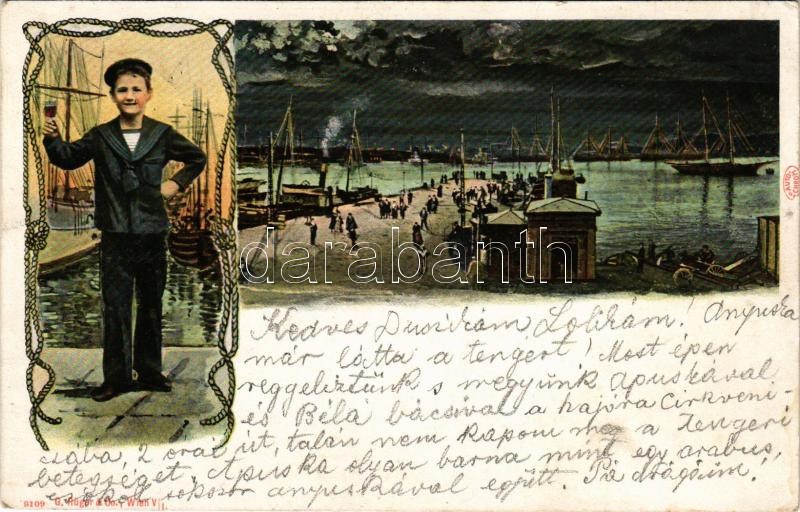 AUTO-CHROM
darabanth
Kedves Dusikám Lolikám! Anyuska
már látta a tengert! Most épen
reggeliztünk s megyünk apuskával
és Béla bácsival a hajóra Cirkveni-
csába, 2 órai út, talán nem kapom meg a tengeri
betegséget. Apuska olyan barna mint egy arabus,
csókol sokszor anyuskával együtt. Pá drágáim!
9109 C. Ruger & Co., Wien VII.